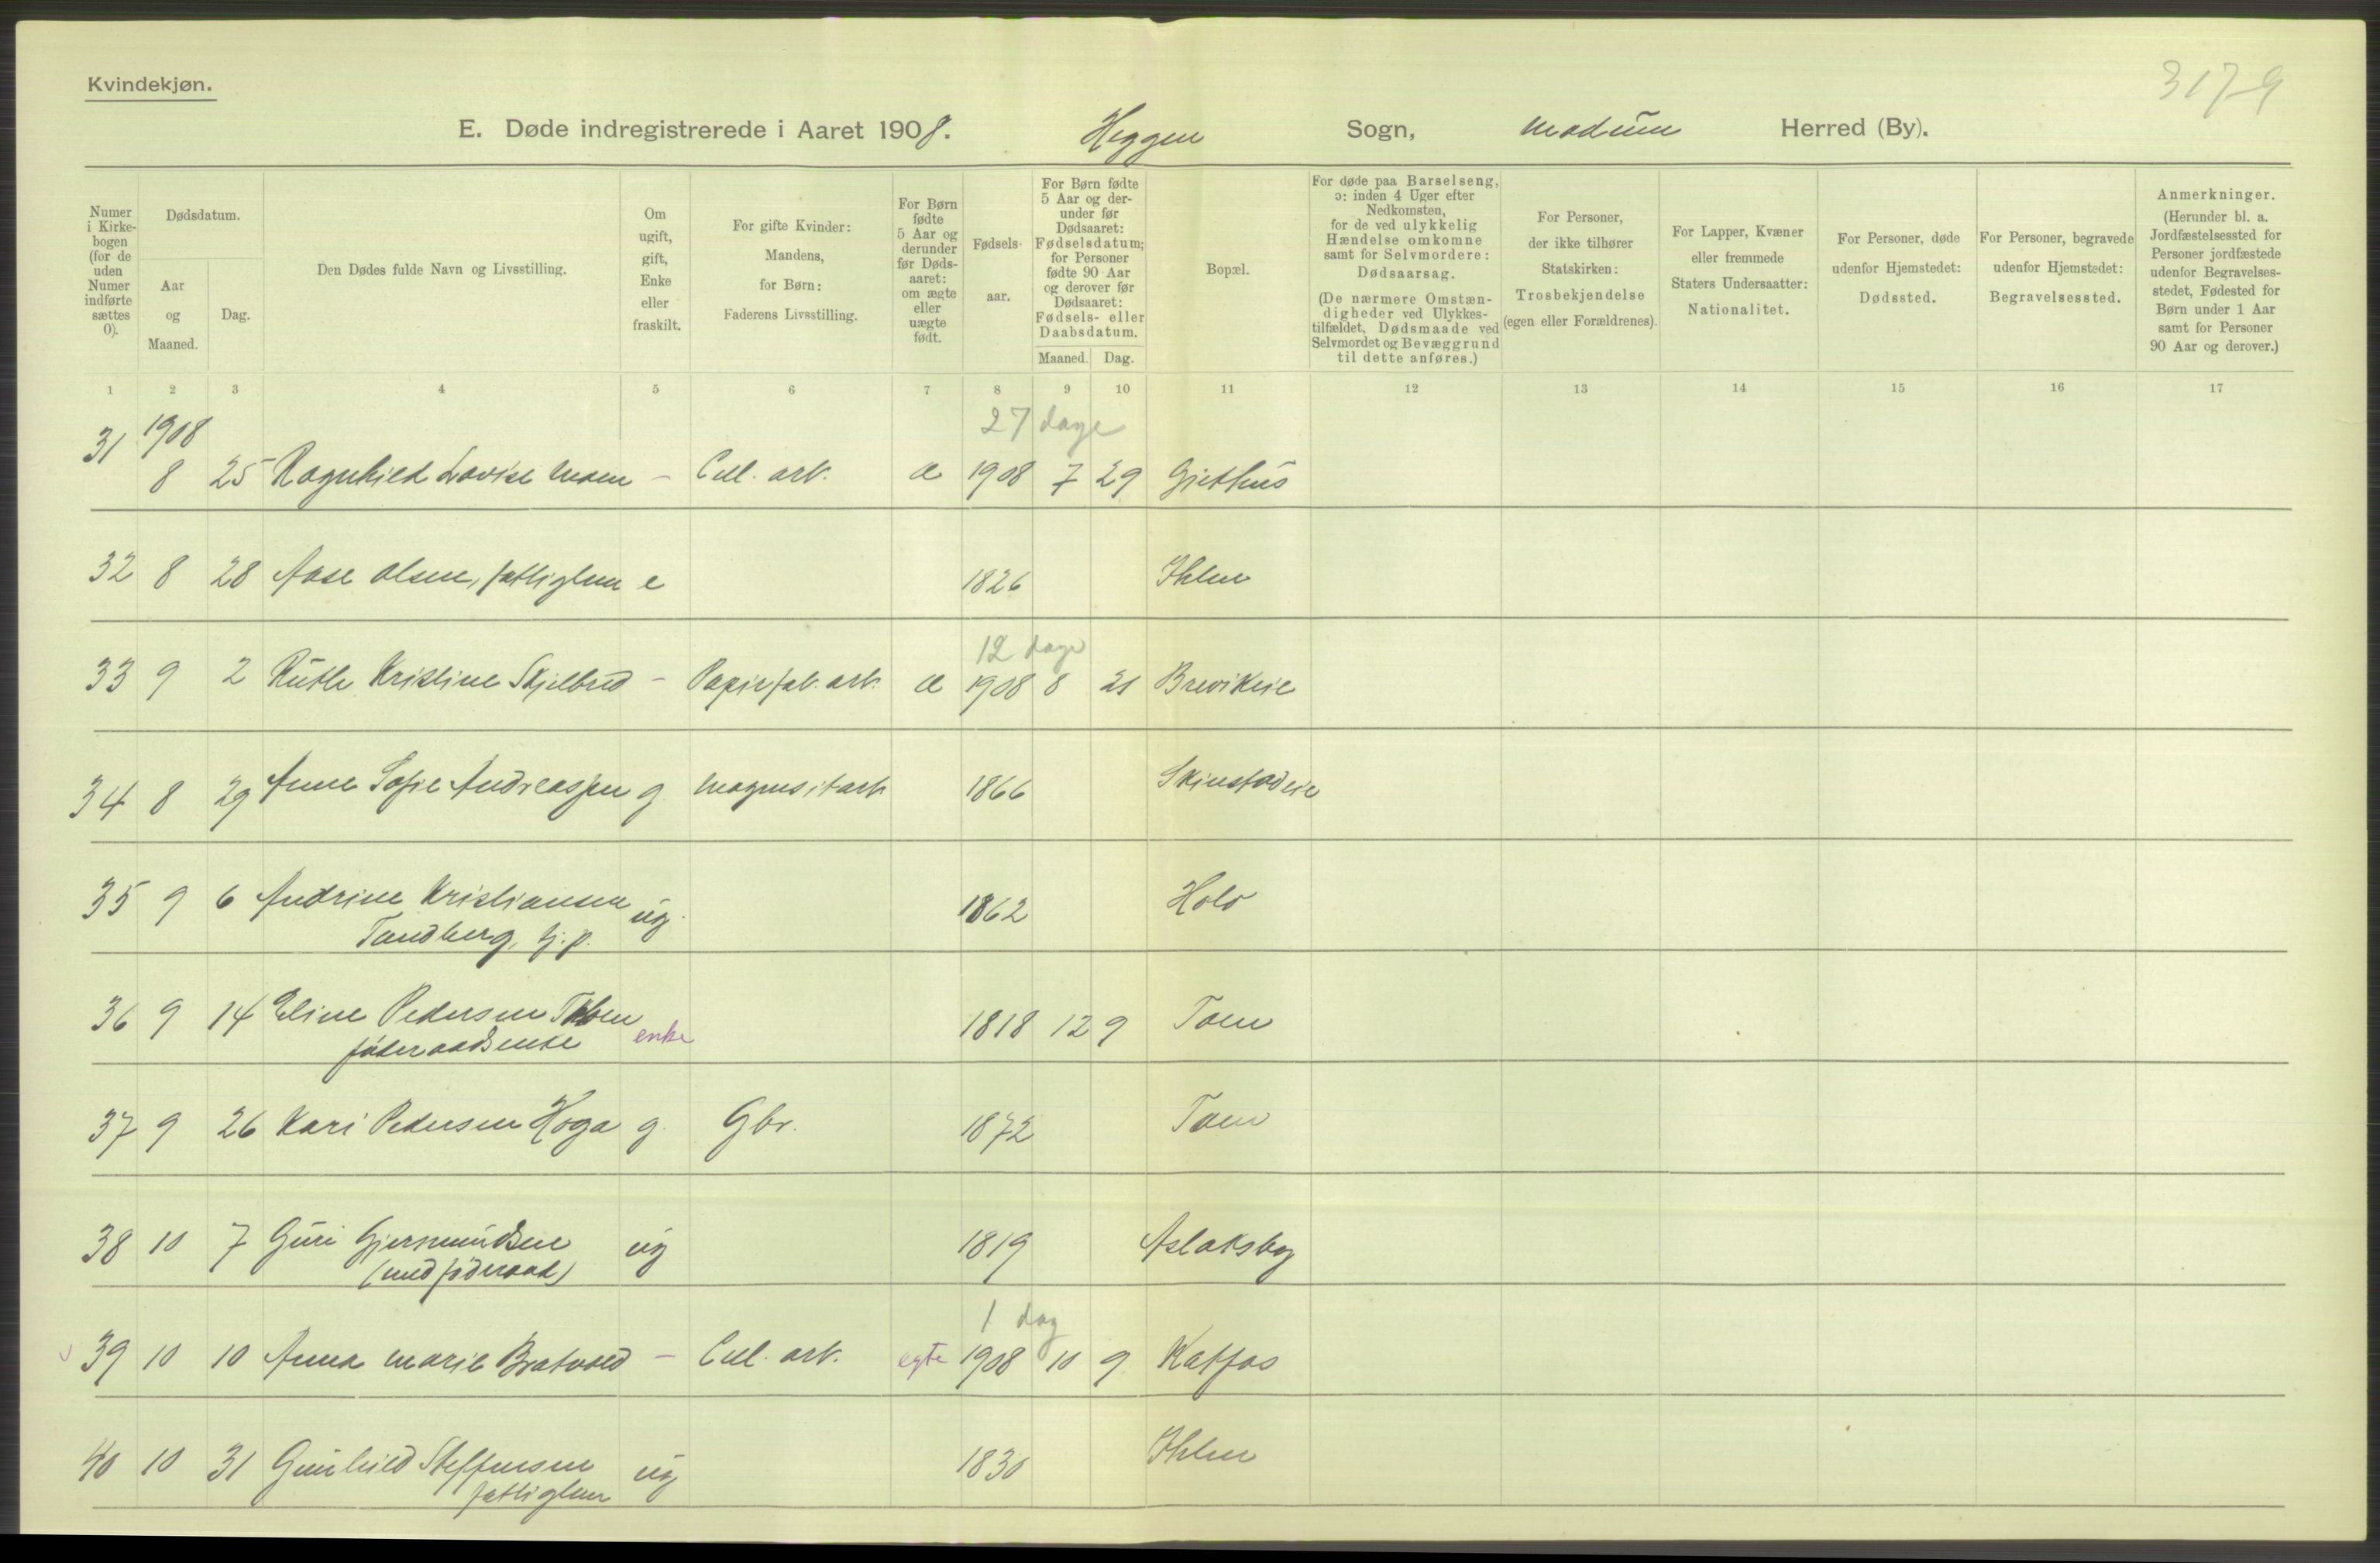 Kvindekjøn.
3179
E. Døde indregistrerede i Aaret 1908. Heggen Sogn, Modum Herred (By).
Numer i Kirkebogen (for de uden Numer indførte sættes 0).
Dødsdatum.
Aar og Maaned.
Dag.
Den Dødes fulde Navn og Livsstilling.
Om ugift, gift, Enke eller fraskilt.
For gifte Kvinder: Mandens, for Børn: Faderens Livsstilling.
For Børn fødte 5 Aar og derunder før Dødsaaret: om ægte eller uægte født.
Fødselsaar.
For Børn fødte 5 Aar og derunder før Dødsaaret: Fødselsdatum; for Personer fødte 90 Aar og derover før Dødsaaret: Fødsels- eller Daabsdatum.
Maaned. Dag.
Bopæl.
For døde paa Barselseng, ɔ: inden 4 Uger efter Nedkomsten, for de ved ulykkelig Hændelse omkomne samt for Selvmordere: Dødsaarsag.
(De nærmere Omstændigheder ved Ulykkestilfældet, Dødsmaade ved Selvmordet og Bevæggrund til dette anføres.)
For Personer, der ikke tilhører Statskirken: Trosbekjendelse (egen eller Forældrenes).
For Lapper, Kvæner eller fremmede Staters Undersaatter: Nationalitet.
For Personer, døde udenfor Hjemstedet: Dødssted.
For Personer, begravede udenfor Hjemstedet: Begravelsessted.
Anmerkninger. (Herunder bl. a. Jordfæstelsessted for Personer jordfæstede udenfor Begravelsesstedet, Fødested for Børn under 1 Aar samt for Personer 90 Aar og derover.)
1 2 3 4 5 6 7 8 9 10 11 12 13 14 15 16 17
1908 27 dage
31 8 25 Ragnhild Lovise Moen – Cell. arb. æ 1908 7 29 Gjethus
32 8 28 Aase Olsen, fattiglem e 1826 Ihlen
12 dage
33 9 2 Ruth Kristine Skjelbred – Papirfab. arb. æ 1908 8 21 Brevikeie
34 8 29 Anne Sofie Andreassen g magnesitarb 1866 Skinstadeie
35 9 6 Andrine Kristiansen ug. 1862 Holo
Tandberg, tj. p.
36 9 14 Eline Pedersen Toen enke 1818 12 9 Toen
føderaadsenke
37 9 26 Kari Pedersen Hoga g. Gbr. 1872 Toen
38 10 7 Guri Gjermundsen ug 1819 Aslaksby
(med føderaad)
1 dag
39 10 10 Anna Marie Bratvold – Cell. arb. egte 1908 10 9 Katfos
40 10 31 Gunhild Steffensen ug 1830 Ihlen
fattiglem